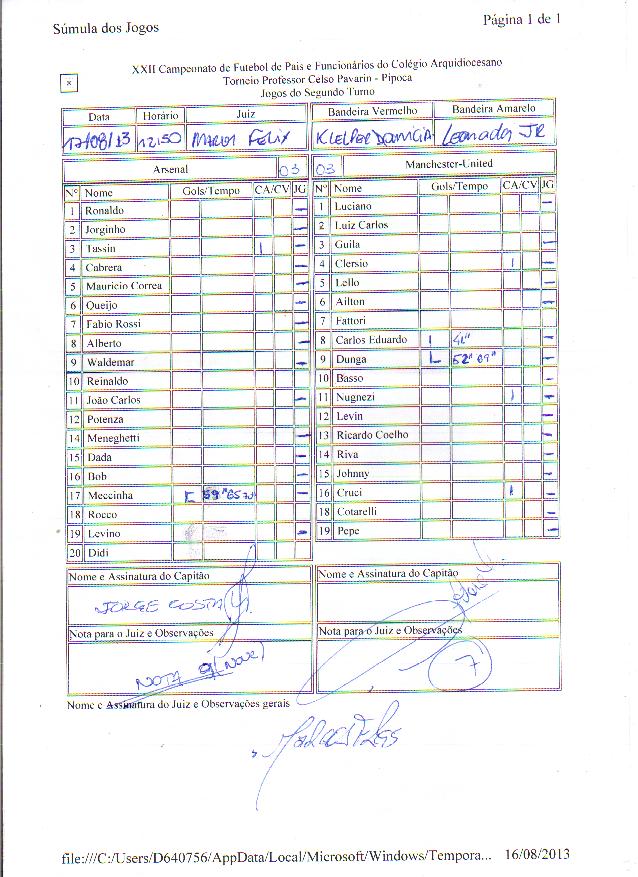 Súmula dos Jogos
Página 1 de 1
XXII Campeonato de Futebol de Pais e Funcionários do Colégio Arquidiocesano
Torneio Professor Celso Pavarin - Pipoca
Jogos do Segundo Turno
Data Horário Juiz Bandeira Vermelho Bandeira Amarelo
17/08/13 12:50 FELIX JR
Arsenal 03 03 Manchester-United
Nº Nome Gols/Tempo CA/CV JG Nº Nome Gols/Tempo CA/CV JG
1 Ronaldo 1 Luciano
2 Jorginho 2 Luiz Carlos
3 Tassin 3 Guila
4 Cabrera 4 Clersio
5 Mauricio Correa 5 Lello
6 Queijo 6 Ailton
7 Fabio Rossi 7 Fattori
8 Alberto 8 Carlos Eduardo
9 Waldemar 9 Dunga
10 Reinaldo 10 Basso
11 João Carlos 11 Nugnezi
12 Potenza 12 Levin
14 Meneghetti 13 Ricardo Coelho
15 Dada 14 Riva
16 Bob 15 Johnny
17 Meccinha 16 Cruci
18 Rocco 18 Cotarelli
19 Levino 19 Pepe
20 Didi
Nome e Assinatura do Capitão Nome e Assinatura do Capitão
JORGE COSTA
Nota para o Juiz e Observações Nota para o Juiz e Observações
NOTA 9 (NOVE) 7
Nome e Assinatura do Juiz e Observações gerais
file:///C:/Users/D640756/AppData/Local/Microsoft/Windows/Tempora... 16/08/2013